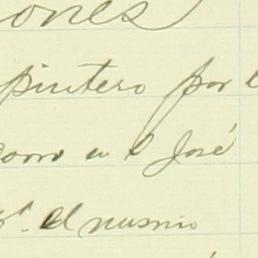 ones
pintero por l
como en S José
ro. el mismo